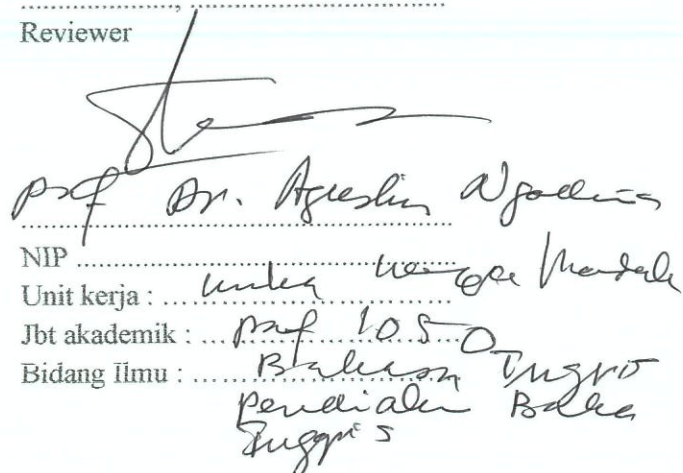 ....................., .......................................
Reviewer
Prof Dr. Agustinus Ngadiman
NIP ....................................................
Unit kerja : Unika Widya Mandala
Jbt akademik : Prof 1050
Bidang Ilmu : Bahasa Inggris
Pendidikan Bahasa
Inggris